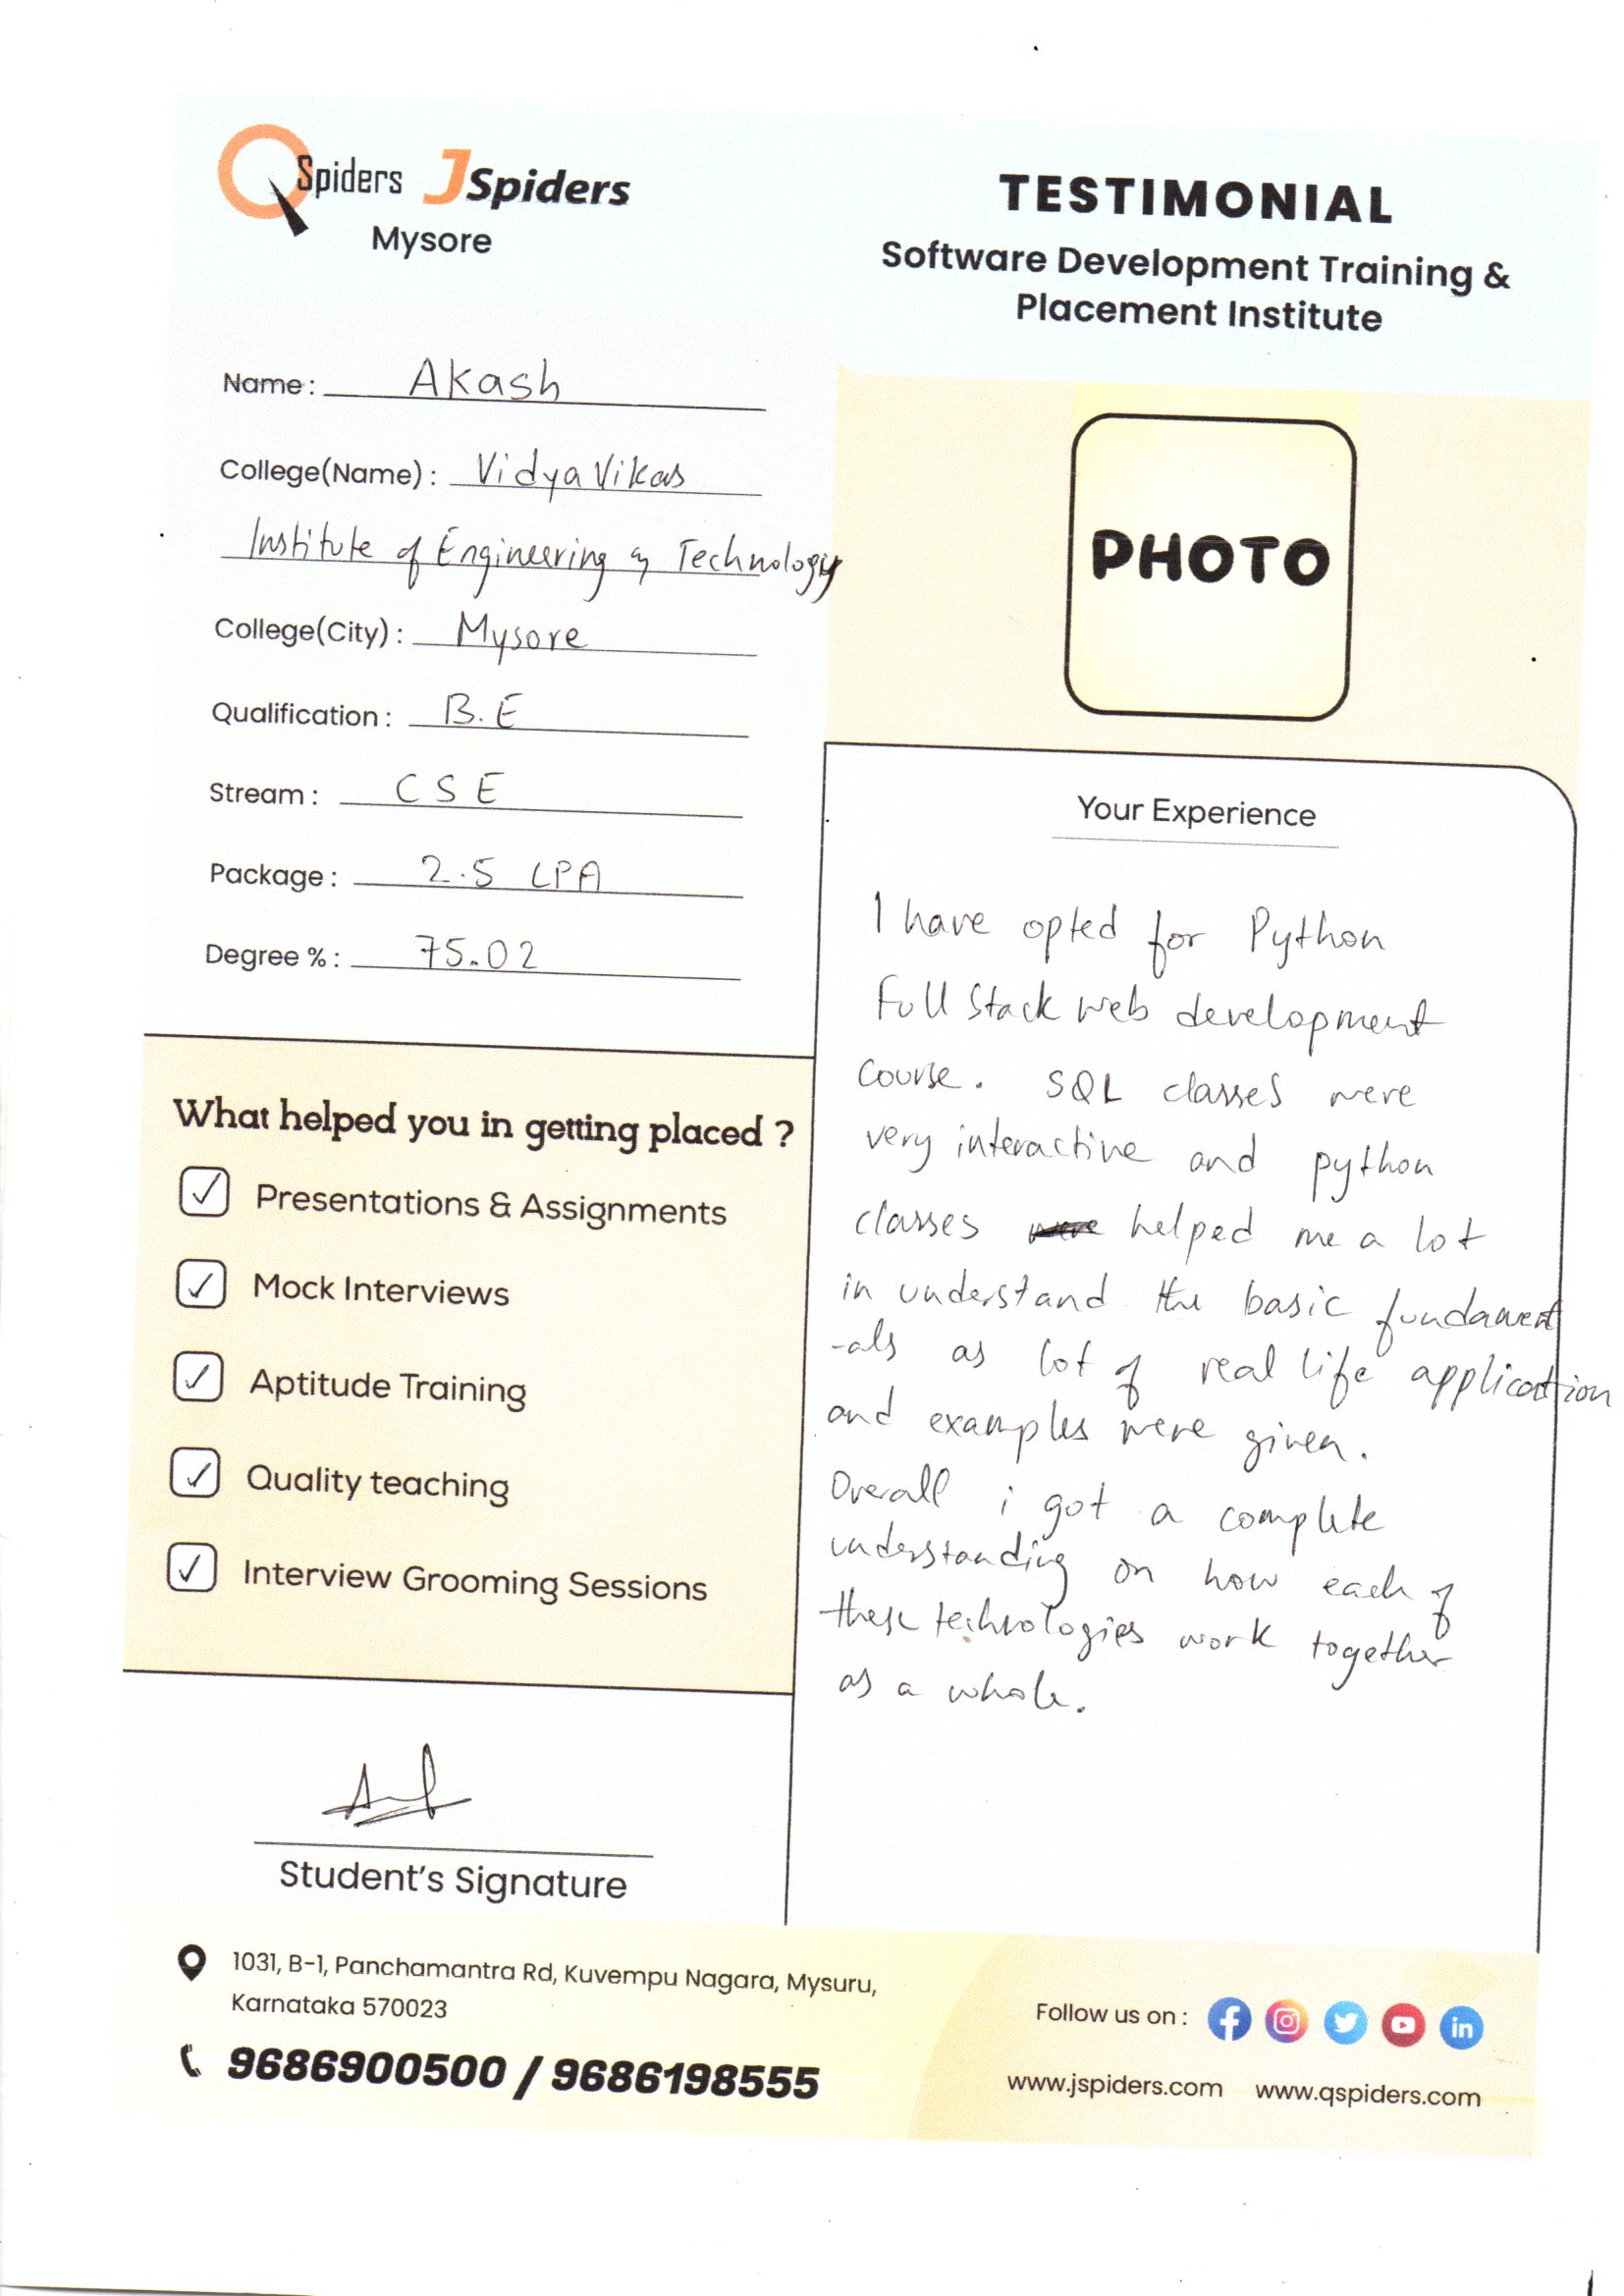 QSpiders JSpiders
Mysore
TESTIMONIAL
Software Development Training &
Placement Institute
Name : Akash
College(Name) : Vidya Vikas
Institute of Engineering & Technology
College(City) : Mysore
Qualification : B.E
Stream : CSE
Package : 2.5 LPA
Degree % : 75.02
PHOTO
What helped you in getting placed ?
✓ Presentations & Assignments
✓ Mock Interviews
✓ Aptitude Training
✓ Quality teaching
✓ Interview Grooming Sessions
Student's Signature
Your Experience
I have opted for Python
Full Stack web development
course. SQL classes were
very interactive and python
classes helped me a lot
in understand the basic fundament
-als as lot of real life application
and examples were given.
Overall i got a complete
understanding on how each of
these technologies work together
as a whole.
1031, B-1, Panchamantra Rd, Kuvempu Nagara, Mysuru,
Karnataka 570023
9686900500 / 9686198555
Follow us on :
www.jspiders.com www.qspiders.com